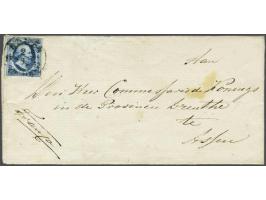 Aan
Den Heer Commissaris des Konings
in de Provincie Drenthe
te
Assen
Franco